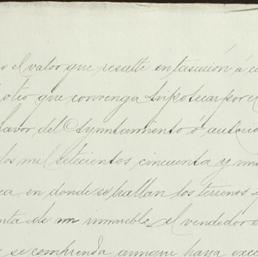 o el valor que resulte en tasación á c
otio que convenga hipotecar por c
favor del Ayuntamiento ó
los mil seiscientos cincuenta y un
ca en donde se hallan los terrenos
nta de un inmueble, el vendedor
se comprenda aunque haya exce